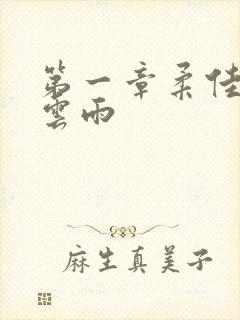 第一章柔佳
雲雨
麻生真美子